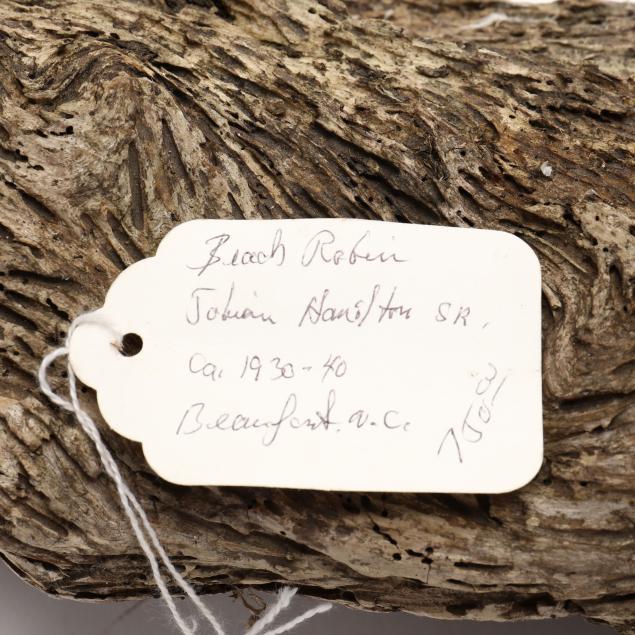 Beach Robin
Julian Hamilton SR.
Ca. 1930-40
Beaufort. N.C.
750